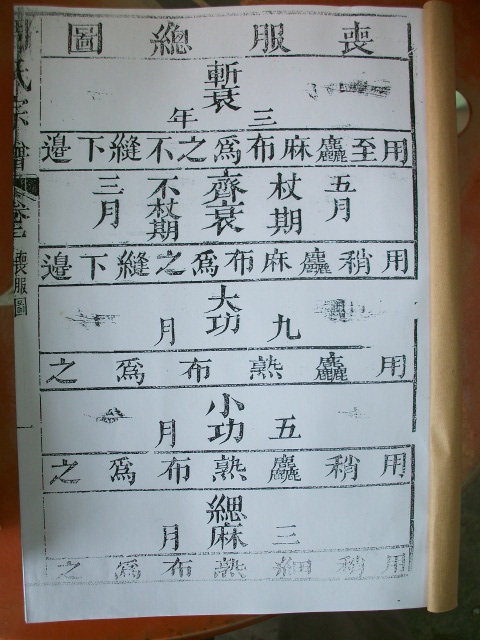 喪服總圖
斬衰
三年
用至麤麻布爲之不縫下邊
五月 杖期 齊衰 不杖期 三月
用稍麤麻布爲之縫下邊
大功
九月
用麤熟布爲之
小功
五月
用稍麤熟布爲之
緦麻
三月
用稍細熟布爲之
氏宗譜 卷 喪服圖 一